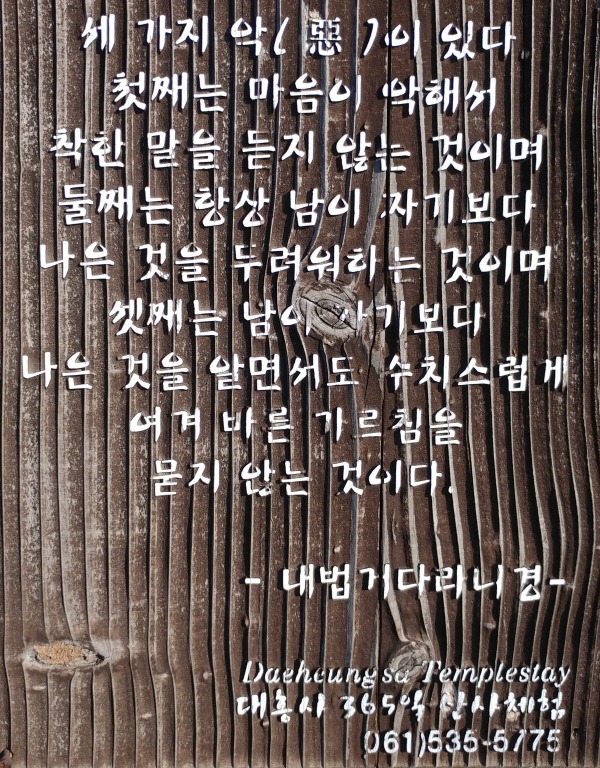 세 가지 악(惡)이 있다
첫째는 마음이 악해서
착한 말을 듣지 않는 것이며
둘째는 항상 남이 자기보다
나은 것을 두려워하는 것이며
셋째는 남이 자기보다
나은 것을 알면서도 수치스럽게
여겨 바른 가르침을
묻지 않는 것이다.
- 내법거다라니경-
Daeheungsa Templestay
대흥사 365일 산사체험
061)535-5775